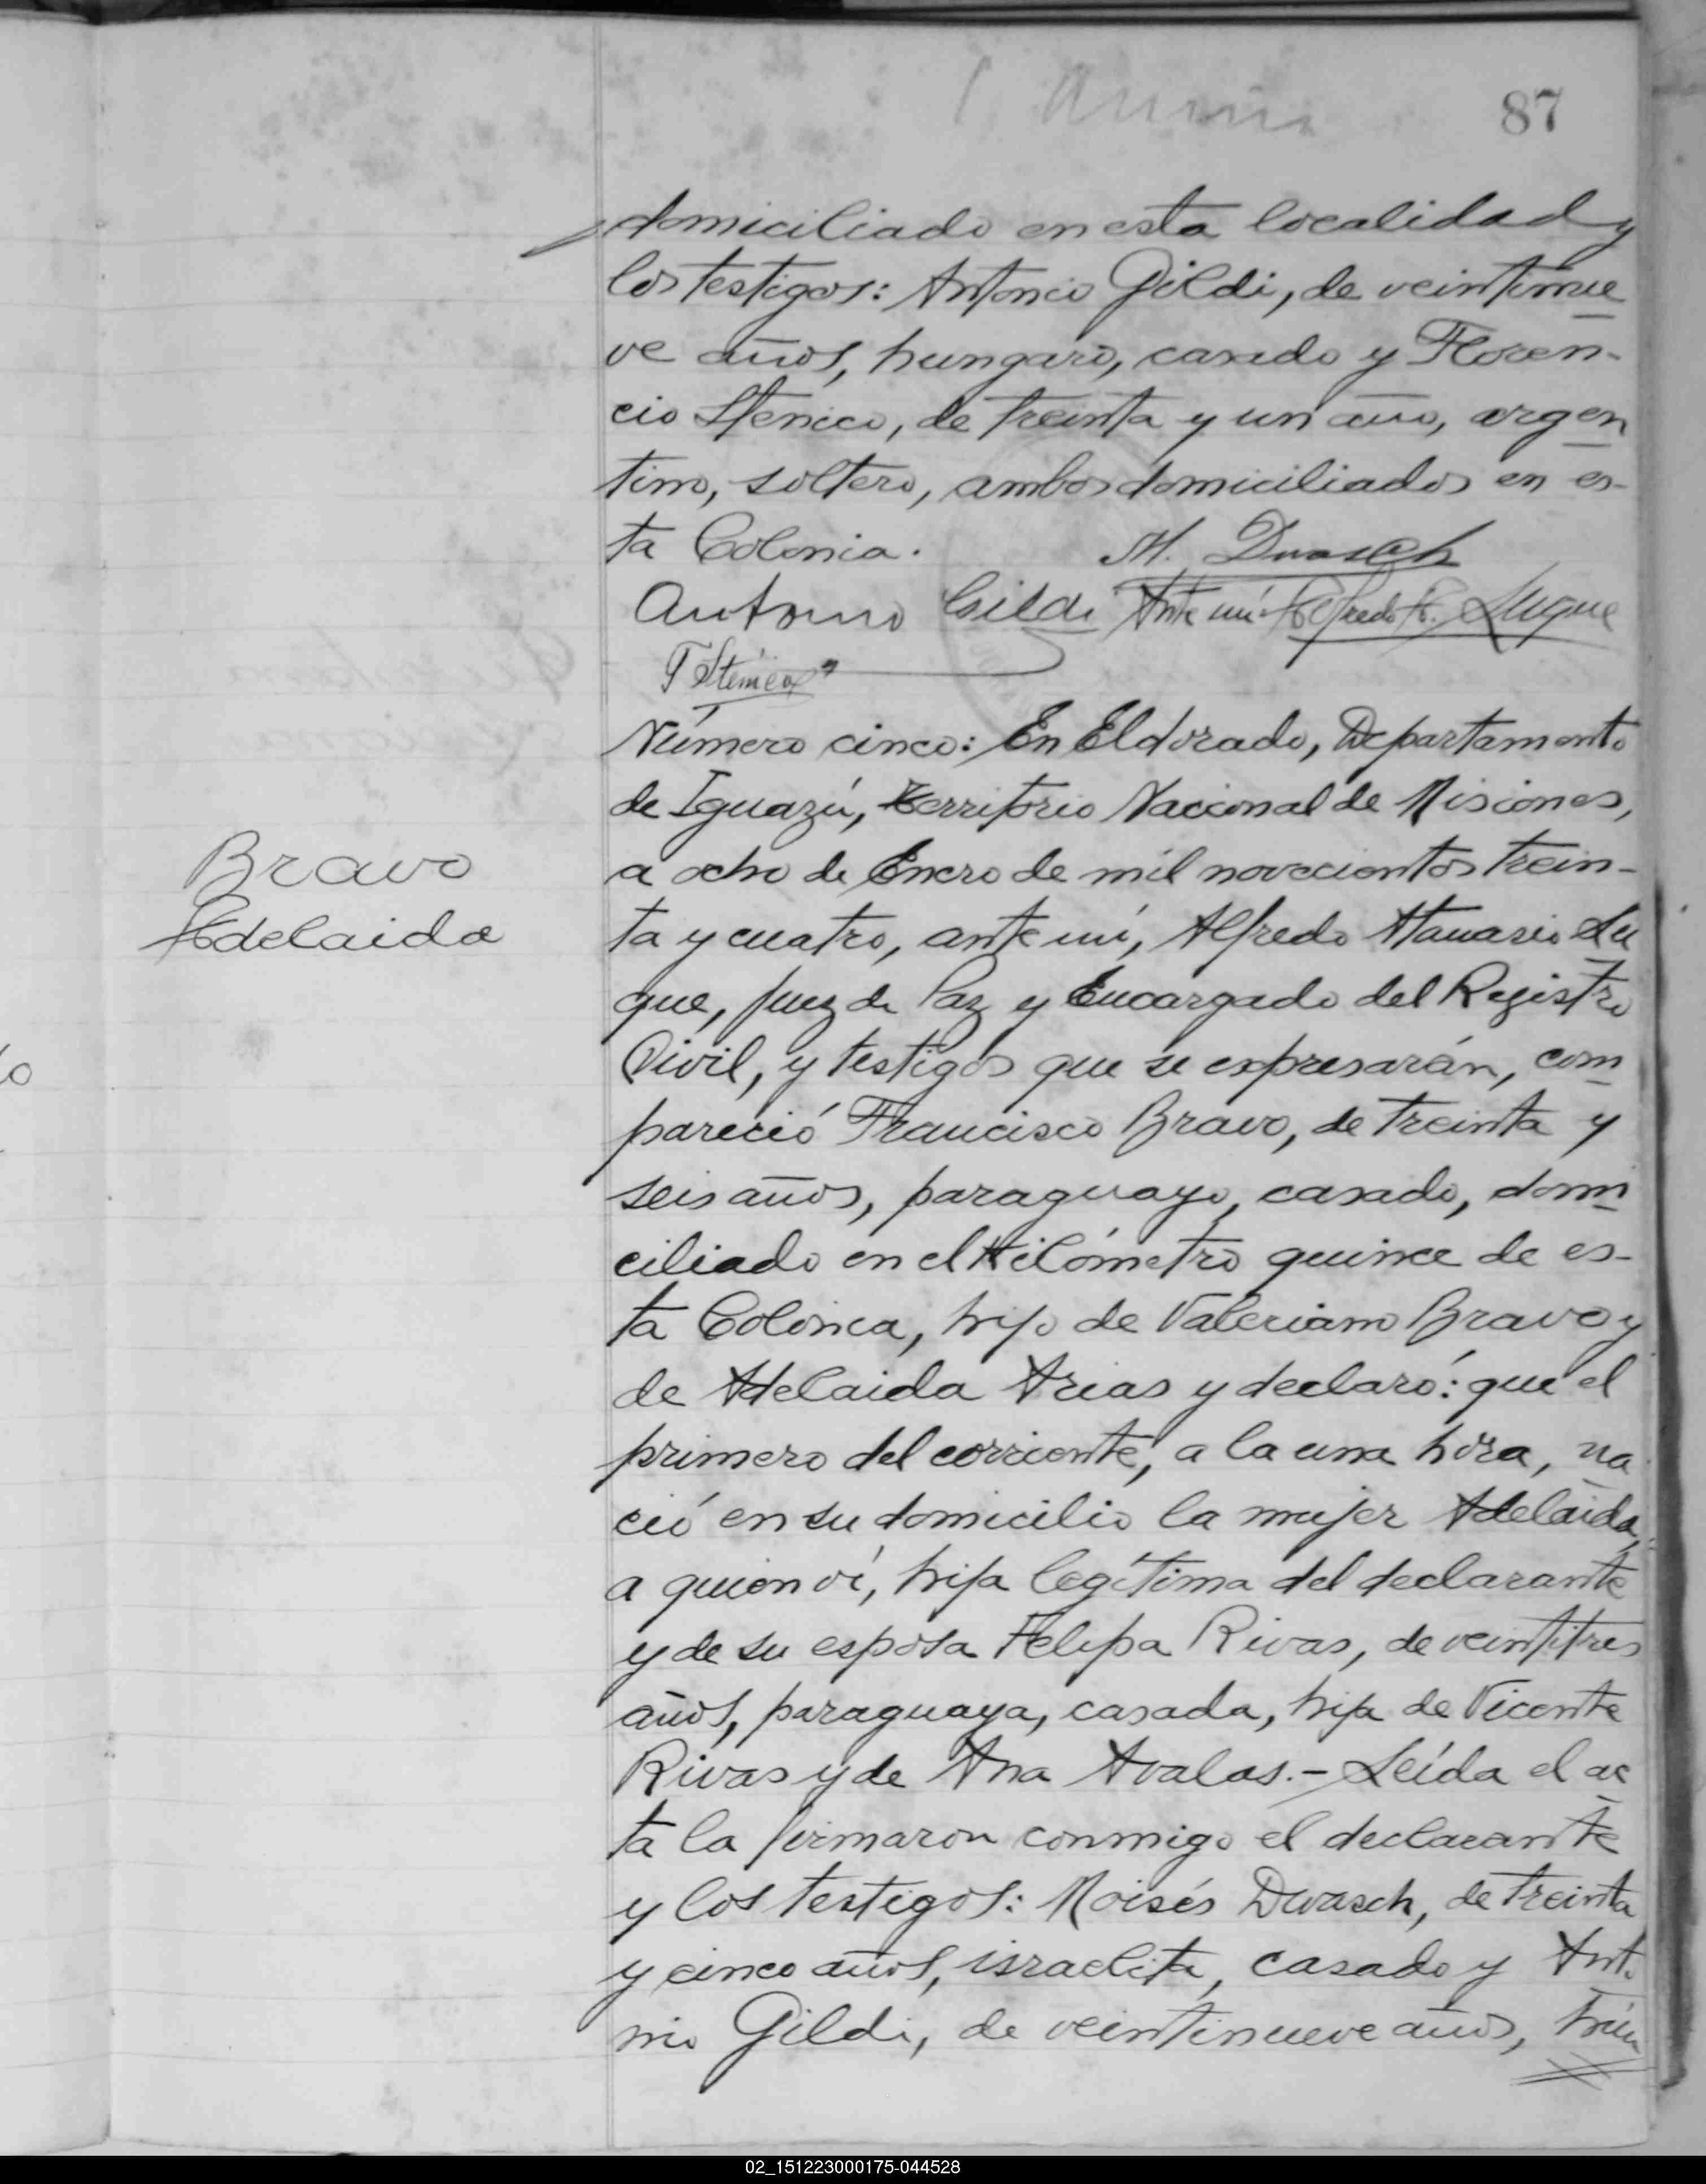 87
domiciliado en esta localidad y
los testigos: Antonio Gildi, de veintinue
ve años, hungaro, casado y Floren-
cio Stenico, de treinta y un año, argen
tino, soltero, ambos domiciliados en es-
ta Colonia. M. Dwasch
Antonio Gildi Ante mí: Alfredo A. Luque
F Sténico
Número cinco: En Eldorado, Departamento
de Iguazú, Territorio Nacional de Misiones,
a ocho de Enero de mil novecientos trein-
Bravo
Adelaida
ta y cuatro, ante mí, Alfredo Atanasio Lu
que, Juez de Paz y Encargado del Registro
Civil, y testigos que se expresarán, com
pareció Francisco Bravo, de treinta y
seis años, paraguayo, casado, domi
ciliado en el Kilómetro quince de es-
ta Colonia, hijo de Valeriano Bravo y
de Adelaida Arias y declaró: que el
primero del corriente, a la una hora, na
ció en su domicilio la mujer Adelaida,
a quien ví, hija legítima del declarante
y de su esposa Felipa Rivas, de veintitres
años, paraguaya, casada, hija de Vicente
Rivas y de Ana Avalos.- Leída el ac
ta la firmaron conmigo el declarante
y los testigos: Moisés Dwasch, de treinta
y cinco años, israelita, casado y Anto
nio Gildi, de veintinueve años, hún
02_151223000175-044528